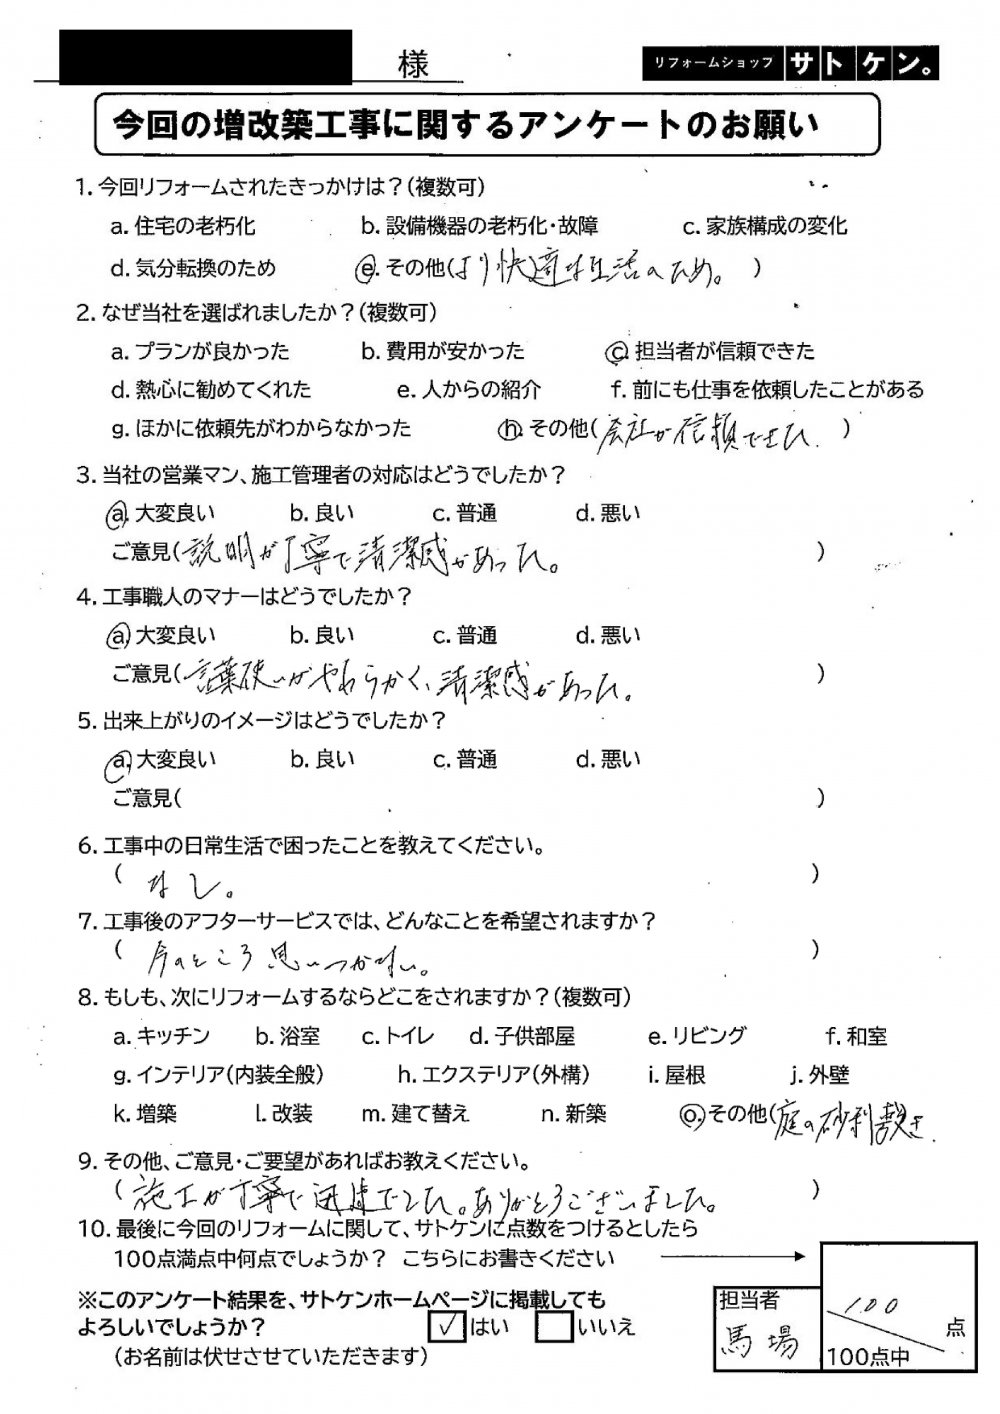 様
リフォームショップ サトケン。
今回の増改築工事に関するアンケートのお願い
1. 今回リフォームされたきっかけは？(複数可)
a. 住宅の老朽化 b. 設備機器の老朽化・故障 c. 家族構成の変化
d. 気分転換のため e. その他(より快適な生活のため。)
2. なぜ当社を選ばれましたか？(複数可)
a. プランが良かった b. 費用が安かった c. 担当者が信頼できた
d. 熱心に勧めてくれた e. 人からの紹介 f. 前にも仕事を依頼したことがある
g. ほかに依頼先がわからなかった h. その他(会社が信頼できた.)
3. 当社の営業マン、施工管理者の対応はどうでしたか？
a. 大変良い b. 良い c. 普通 d. 悪い
ご意見(説明が丁寧で清潔感があった。)
4. 工事職人のマナーはどうでしたか？
a. 大変良い b. 良い c. 普通 d. 悪い
ご意見(言葉使いがやわらかく、清潔感があった。)
5. 出来上がりのイメージはどうでしたか？
a. 大変良い b. 良い c. 普通 d. 悪い
ご意見( )
6. 工事中の日常生活で困ったことを教えてください。
(なし。)
7. 工事後のアフターサービスでは、どんなことを希望されますか？
(今のところ思いつかない。)
8. もしも、次にリフォームするならどこをされますか？(複数可)
a. キッチン b. 浴室 c. トイレ d. 子供部屋 e. リビング f. 和室
g. インテリア(内装全般) h. エクステリア(外構) i. 屋根 j. 外壁
k. 増築 l. 改装 m. 建て替え n. 新築 o. その他(庭の砂利敷き.
9. その他、ご意見・ご要望があればお教えください。
(施工が丁寧で迅速でした。ありがとうございました。)
10. 最後に今回のリフォームに関して、サトケンに点数をつけるとしたら
100点満点中何点でしょうか？ こちらにお書きください
※このアンケート結果を、サトケンホームページに掲載しても
よろしいでしょうか？ ✓はい いいえ
(お名前は伏せさせていただきます)
担当者
馬場
100 点
100点中